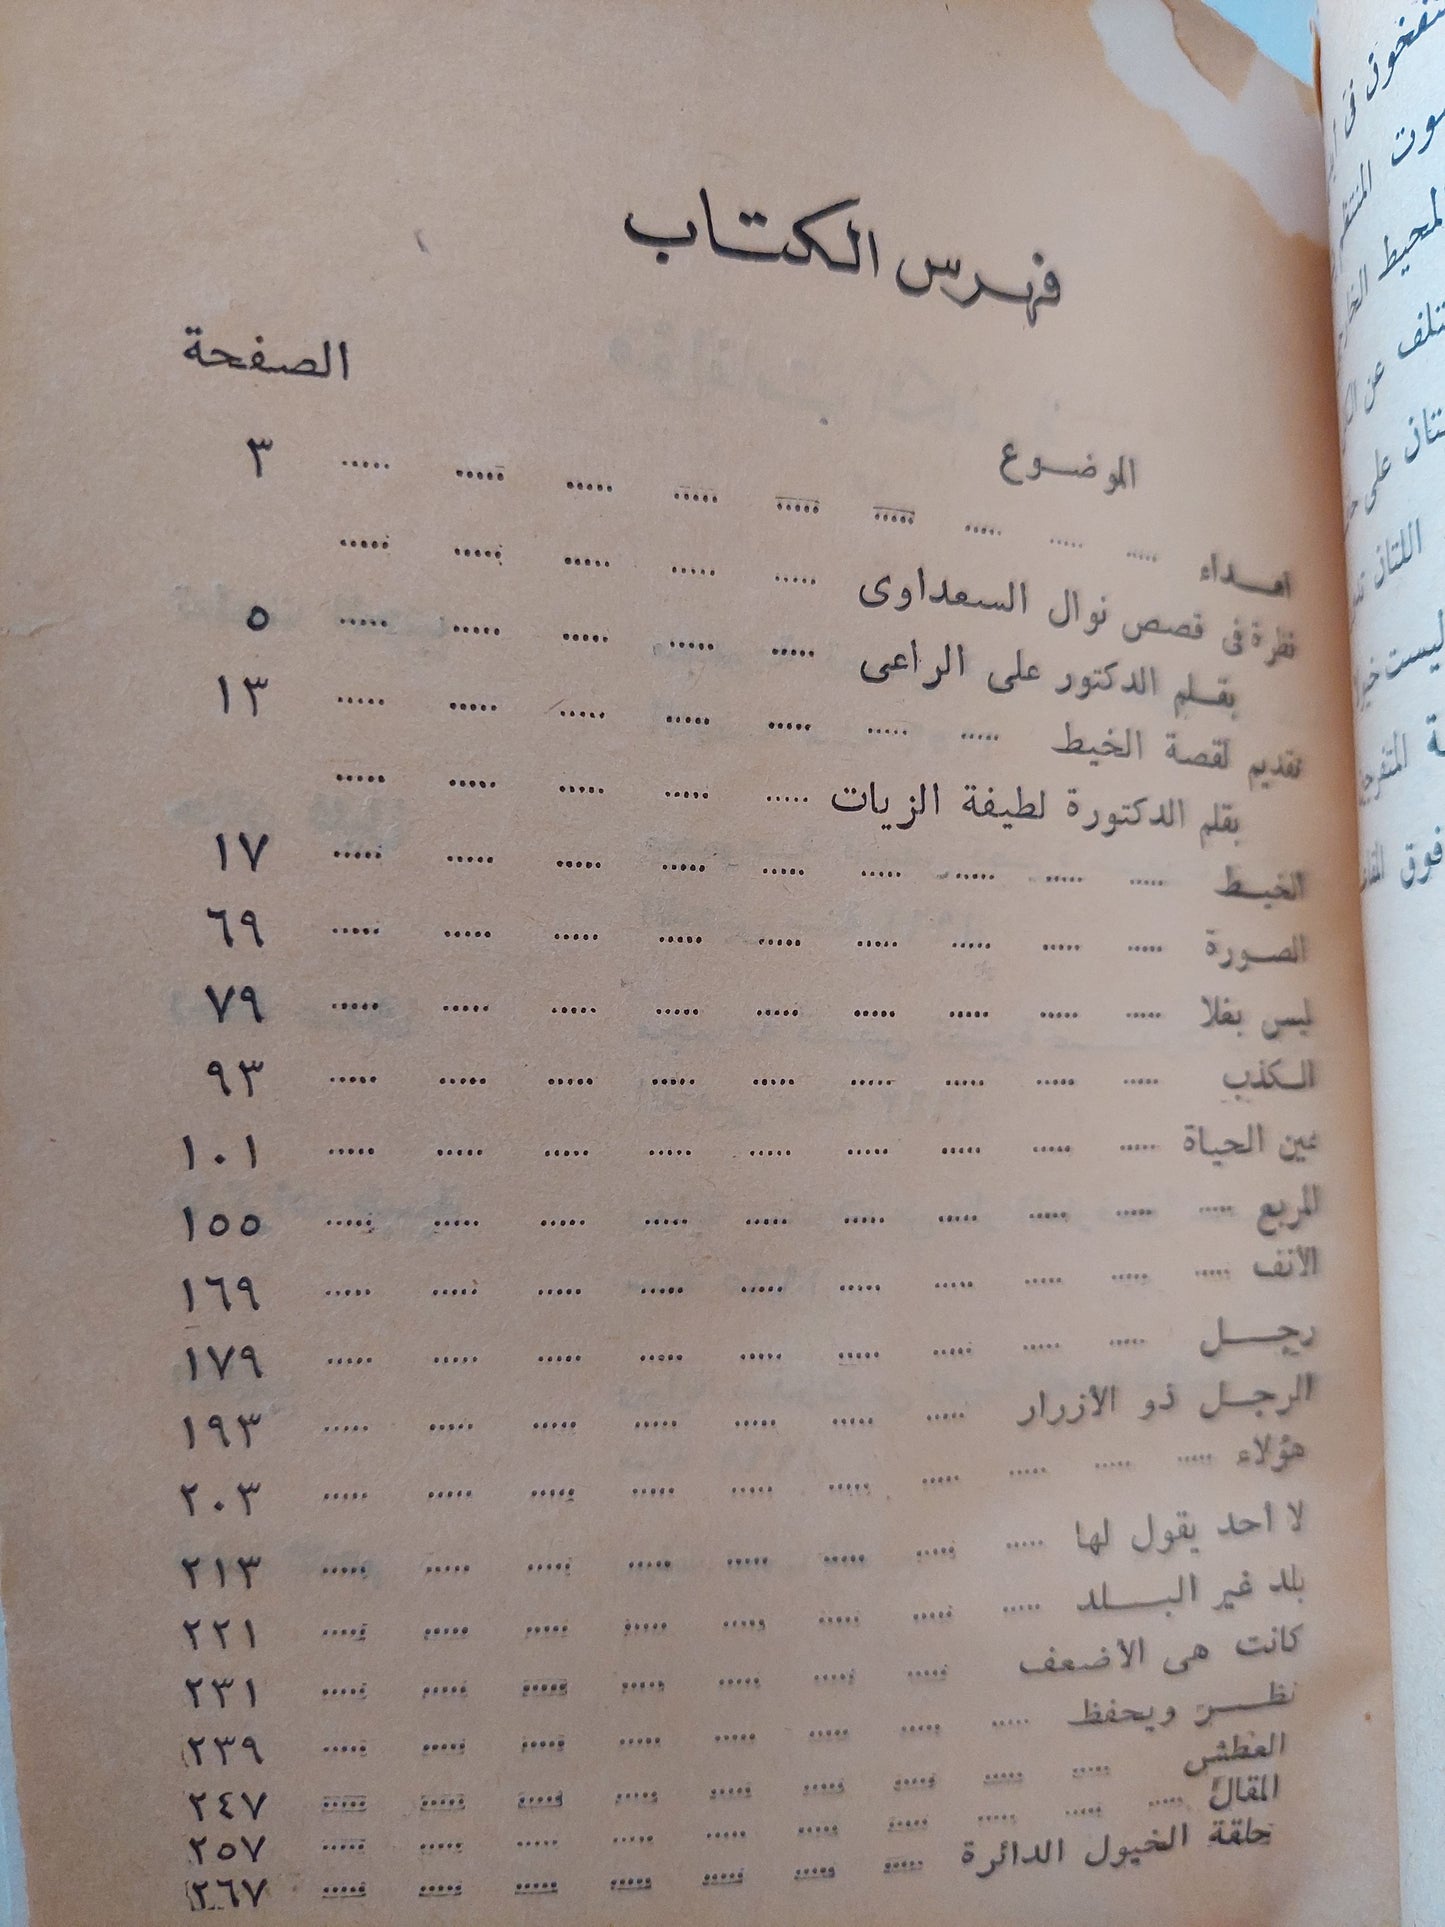 فهرس الكتاب
الموضوع الصفحة
اهداء ..... ٣
نظرة فى قصص نوال السعداوى .....
بقلم الدكتور على الراعى ..... ٥
تقديم لقصة الخيط ..... ١٣
بقلم الدكتورة لطيفة الزيات .....
الخيط ..... ١٧
الصورة ..... ٦٩
ليس بغلا ..... ٧٩
الكذب ..... ٩٣
عين الحياة ..... ١٠١
المربع ..... ١٥٥
الأنف ..... ١٦٩
رجل ..... ١٧٩
الرجل ذو الأزرار ..... ١٩٣
هؤلاء ..... ٢٠٣
لا أحد يقول لها ..... ٢١٣
بلد غير البلد ..... ٢٢١
كانت هى الأضعف ..... ٢٣١
نظر ويحفظ ..... ٢٣٩
العطش ..... ٢٤٧
المقال ..... ٢٥٧
حلقة الخيول الدائرة ..... ٢٦٧